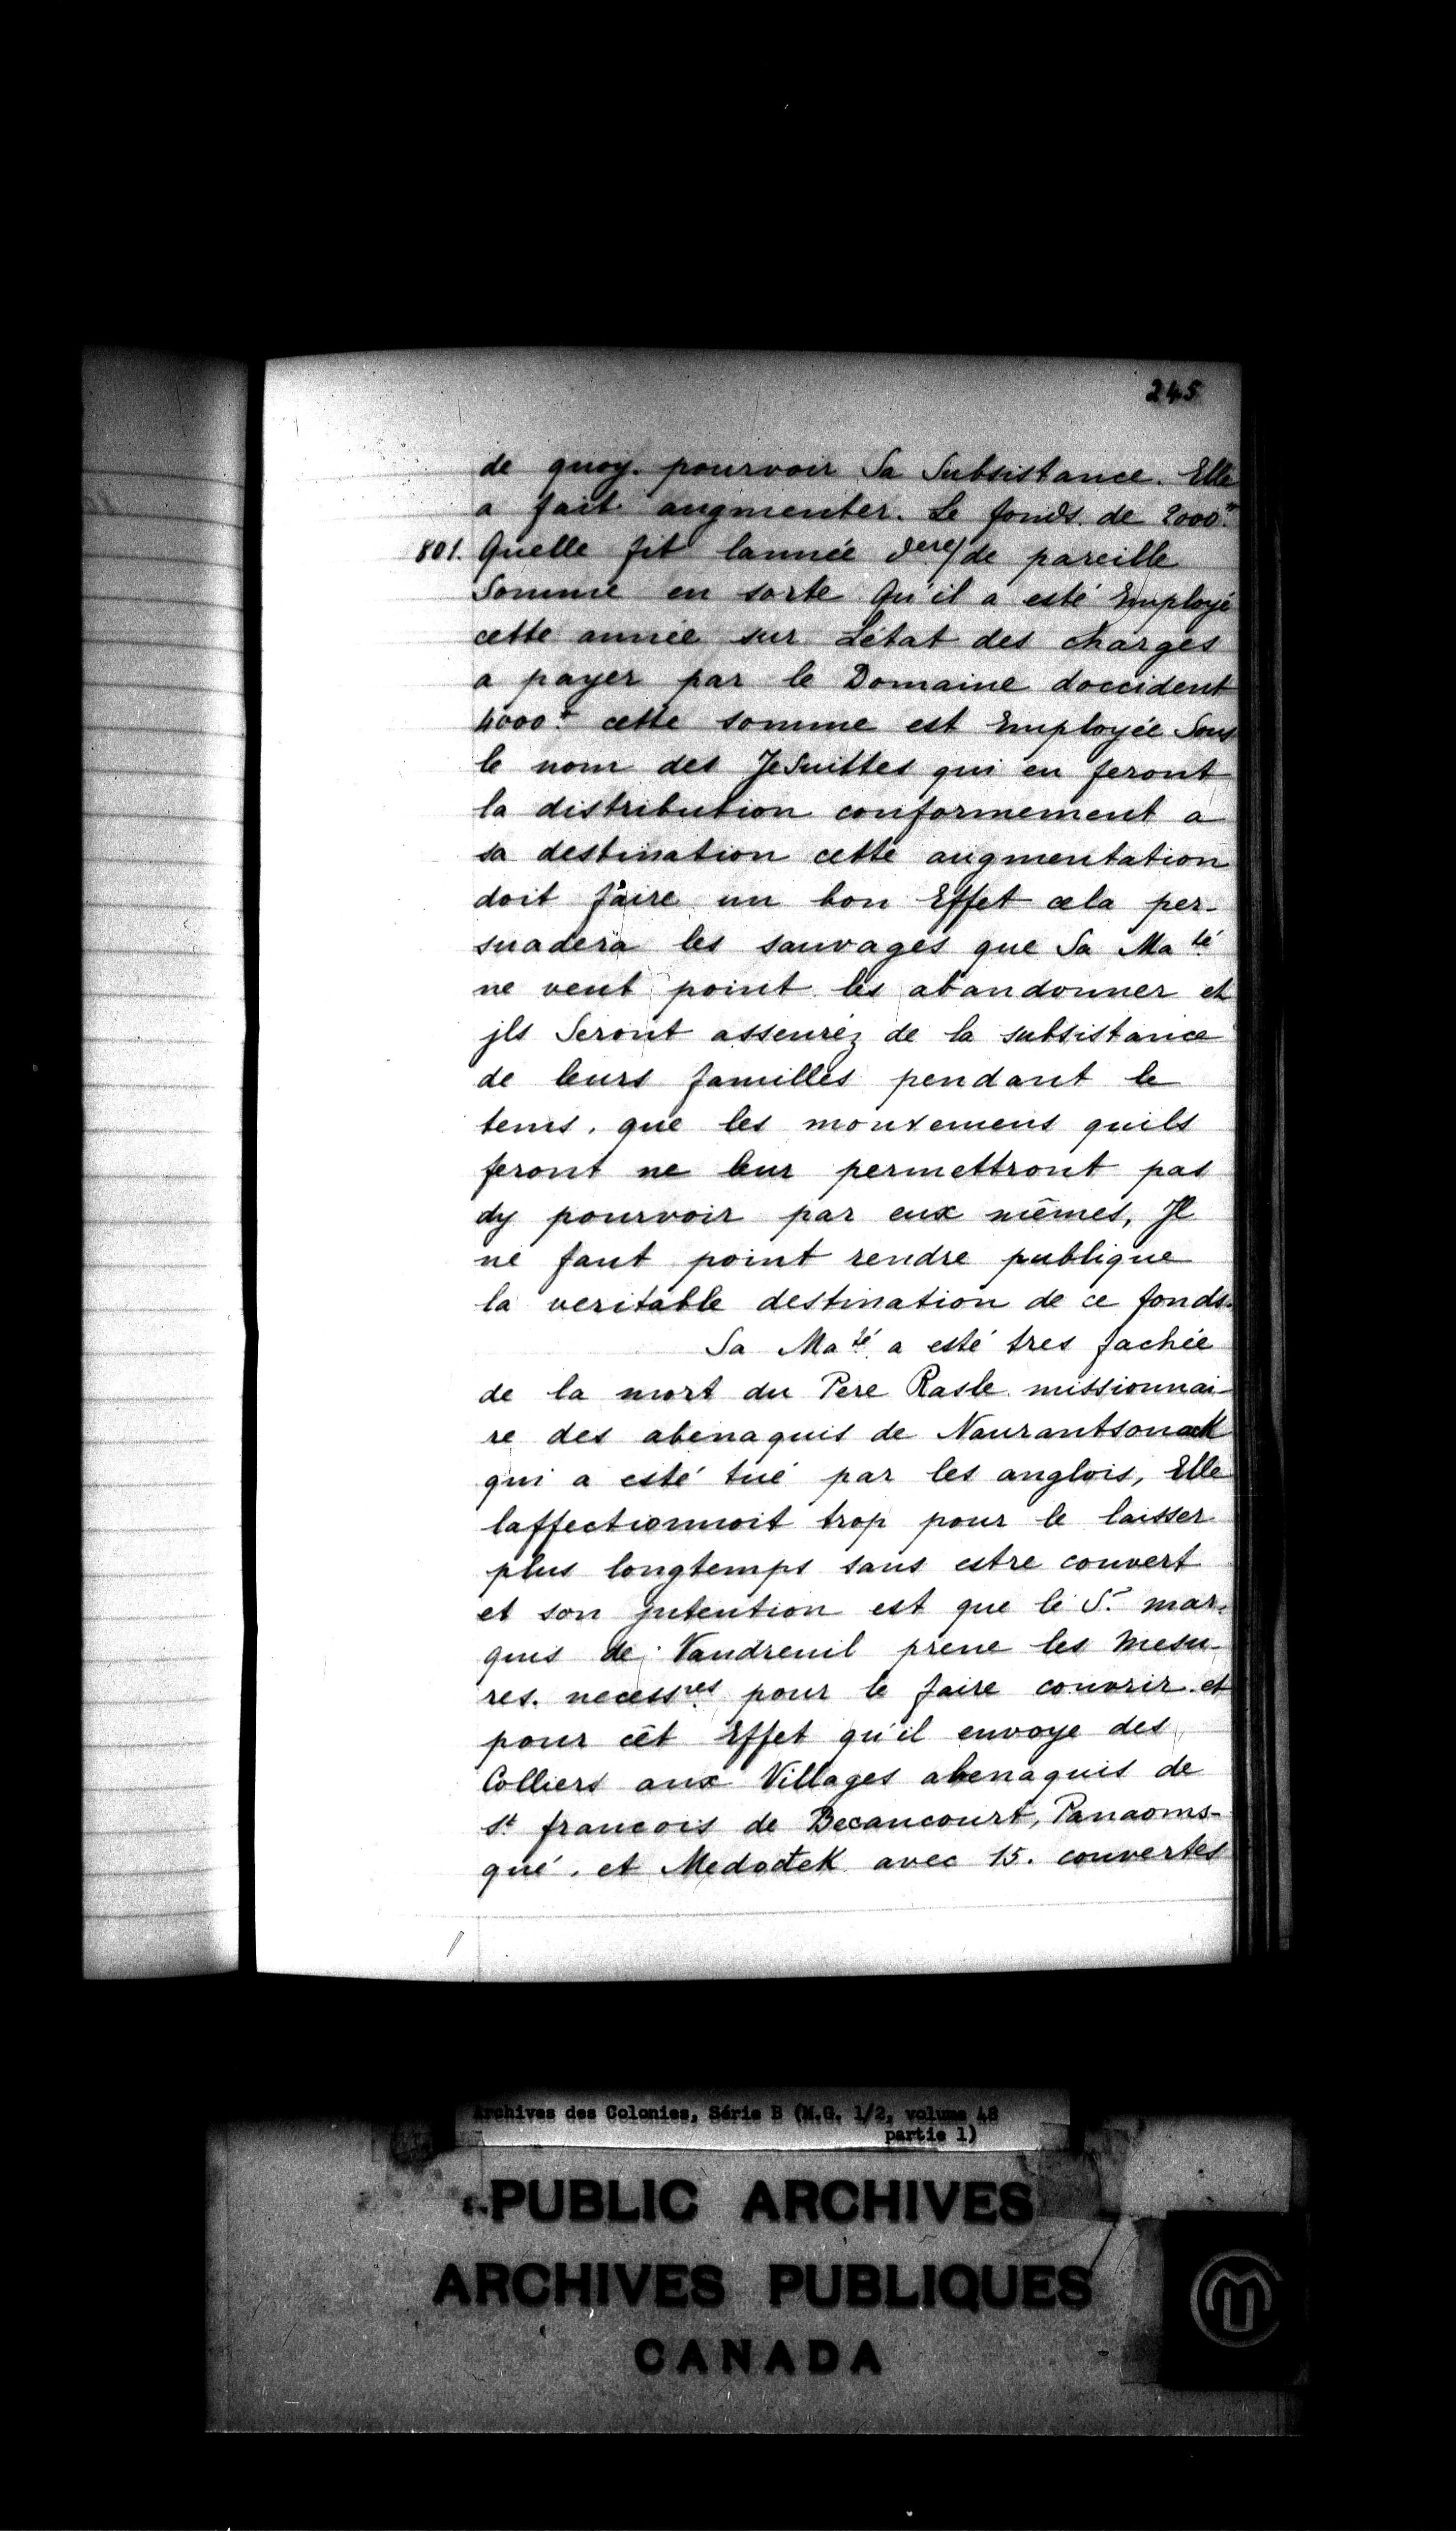 245
de quoy. pourvoir Sa Subsistance. Elle
a fait augmenter. Le fonds de 2000ᵗᵗ
801. Quelle fit lannée dere/ de pareille
Somme en sorte Qu'il a esté Employé
cette année sur L'état des charges
a payer par le Domaine doccident
4000ᵗᵗ cette somme est Employée Sous
le nom des JeSuittes qui en feront
la distribution conformement a
sa destination cette augmentation
doit faire un bon Effet cela per-
suadera les sauvages que Sa Ma té
ne veut point les abandonner et
jls Seront asseuréz de la subsistance
de leurs familles pendant le
tems. que les mouvemens quils
feront ne leur permettront pas
dy pourvoir par eux mêmes, Jl
ne faut point rendre publique
la veritable destination de ce fonds.
Sa Ma té a esté tres fachée
de la mort du Pere Rasle missionnai-
re des abenaquis de Naurantsouak
qui a esté tué par les anglois, Elle
laffectionnoit trop pour le laisser
plus longtemps sans estre couvert
et son jntention est que le S.r mar-
quis de Vaudreuil prene les mesu-
res. necess.res pour le faire couvrir et
pour cêt Effet qu'il envoye des
Colliers aux Villages abenaquis de
st francois de Becancourt, Panaoms-
qué. et Medoctek avec 15. couvertes
Archives des Colonies, Série B (M.G. 1/2, volume 48
partie 1)
PUBLIC ARCHIVES
ARCHIVES PUBLIQUES
CANADA